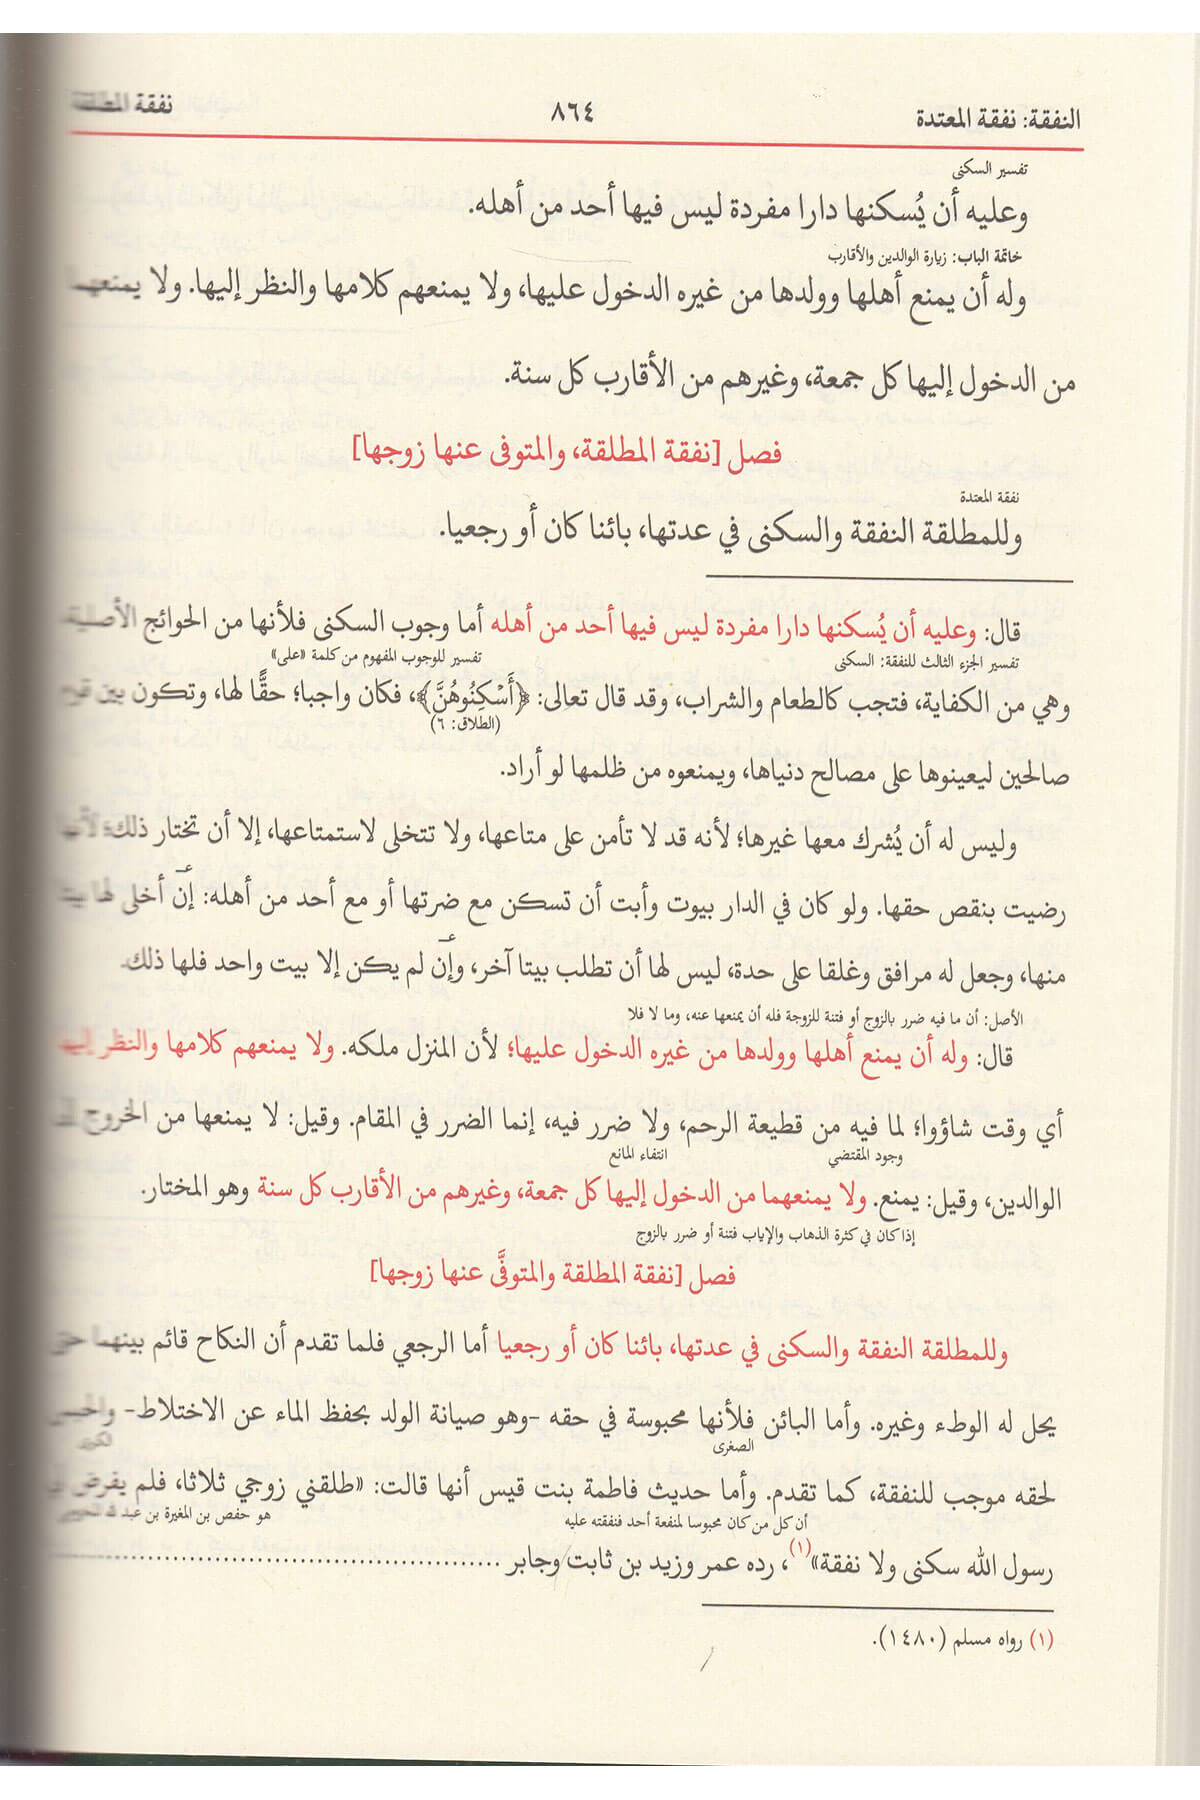 النفقة: نفقة المعتدة ٨٦٤ نفقة المطلقة
تفسير السكنى
وعليه أن يُسكنها دارا مفردة ليس فيها أحد من أهله.
خاتمة الباب: زيارة الوالدين والأقارب
وله أن يمنع أهلها وولدها من غيره الدخول عليها، ولا يمنعهم كلامها والنظر إليها. ولا يمنعهما
من الدخول إليها كل جمعة، وغيرهم من الأقارب كل سنة.
فصل [نفقة المطلقة، والمتوفى عنها زوجها]
نفقة المعتدة
وللمطلقة النفقة والسكنى في عدتها، بائنا كان أو رجعيا.
قال: وعليه أن يُسكنها دارا مفردة ليس فيها أحد من أهله أما وجوب السكنى فلأنها من الحوائج الأصلية،
تفسير الجزء الثالث للنفقة: السكنى تفسير للوجوب المفهوم من كلمة «على»
وهي من الكفاية، فتجب كالطعام والشراب، وقد قال تعالى: ﴿أَسْكِنُوهُنَّ﴾، فكان واجبا؛ حقًّا لها، وتكون بين قوم
(الطلاق: ٦)
صالحين ليعينوها على مصالح دنياها، ويمنعوه من ظلمها لو أراد.
وليس له أن يُشرك معها غيرها؛ لأنه قد لا تأمن على متاعها، ولا تتخلى لاستمتاعها، إلا أن تختار ذلك؛ لأنها
رضيت بنقص حقها. ولو كان في الدار بيوت وأبت أن تسكن مع ضرتها أو مع أحد من أهله: إن أخلى لها بيتا
منها، وجعل له مرافق وغلقا على حدة، ليس لها أن تطلب بيتا آخر، وإن لم يكن إلا بيت واحد فلها ذلك.
الأصل: أن ما فيه ضرر بالزوج أو فتنة للزوجة فله أن يمنعها عنه، وما لا فلا
قال: وله أن يمنع أهلها وولدها من غيره الدخول عليها؛ لأن المنزل ملكه. ولا يمنعهم كلامها والنظر إليها
أي وقت شاؤوا؛ لما فيه من قطيعة الرحم، ولا ضرر فيه، إنما الضرر في المقام. وقيل: لا يمنعها من الخروج
وجود المقتضي انتفاء المانع
الوالدين، وقيل: يمنع. ولا يمنعهما من الدخول إليها كل جمعة، وغيرهم من الأقارب كل سنة وهو المختار.
إذا كان في كثرة الذهاب والإياب فتنة أو ضرر بالزوج
فصل [نفقة المطلقة والمتوفَّى عنها زوجها]
وللمطلقة النفقة والسكنى في عدتها، بائنا كان أو رجعيا أما الرجعي فلما تقدم أن النكاح قائم بينهما حتى
يحل له الوطء وغيره. وأما البائن فلأنها محبوسة في حقه -وهو صيانة الولد بحفظ الماء عن الاختلاط- والحبس
الصغرى الكبرى
لحقه موجب للنفقة، كما تقدم. وأما حديث فاطمة بنت قيس أنها قالت: «طلقني زوجي ثلاثا، فلم يفرض
أن كل من كان محبوسا لمنفعة أحد فنفقته عليه هو حفص بن المغيرة بن عبد
رسول الله سكنى ولا نفقة»(١)، رده عمر وزيد بن ثابت وجابر ..........................................
(١) رواه مسلم (١٤٨٠).